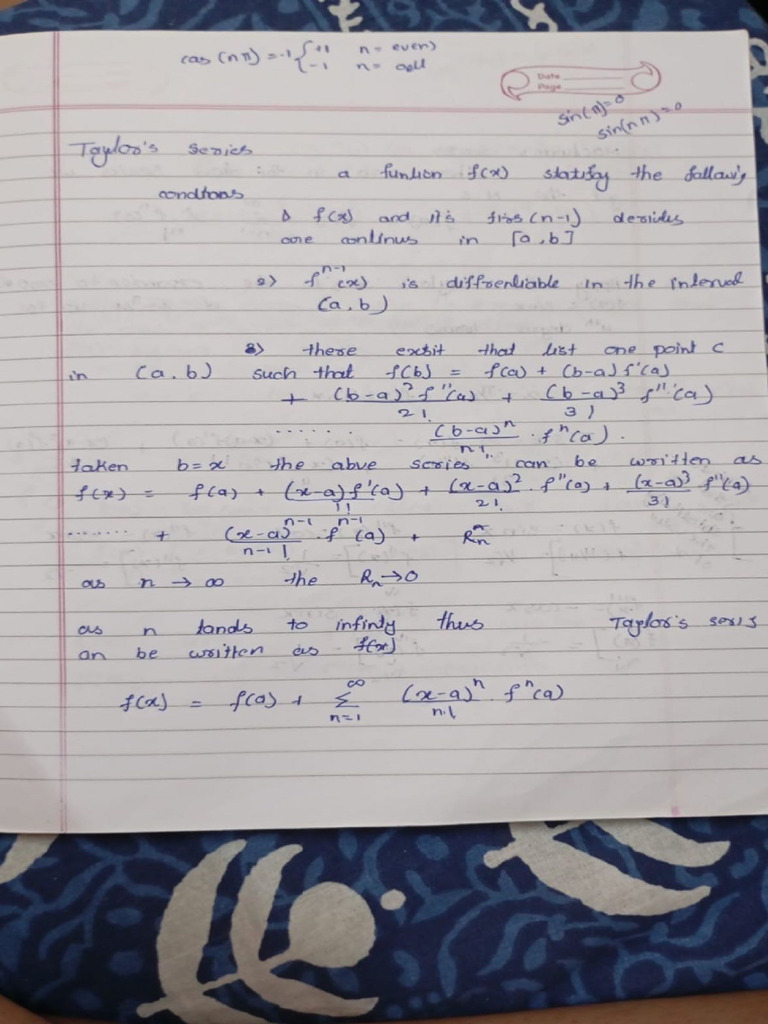 cos (nπ) = -1 { +1 n = even)
-1 n = odd
Date
Page
sin(π)=0
sin(nπ)=0
Taylor's series
a funtion f(x) statify the followig
condtions
1) f(x) and it's firs (n-1) derivides
are continus in [a,b]
2) fⁿ⁻¹(x) is diffrentiable in the interval
(a,b)
3) there exsit that list one point C
in (a.b) such that f(b) = f(a) + (b-a) f'(a)
+ (b-a)² f''(a)/2! + (b-a)³ f'''(a)/3!
....... (b-a)ⁿ/n! . fⁿ(a).
taken b=x the abve series can be written as
f(x) = f(a) + (x-a) f'(a)/1! + (x-a)²/2! . f''(a) + (x-a)³/3! f'''(a)
....... + (x-a)ⁿ⁻¹/n-1! . fⁿ⁻¹(a) + Rn
as n → ∞ the Rn→0
as n tands to infinty thus Taylor's seris
an be written as f(x)
f(x) = f(a) + ∞Σn=1 (x-a)ⁿ/n! . fⁿ(a)